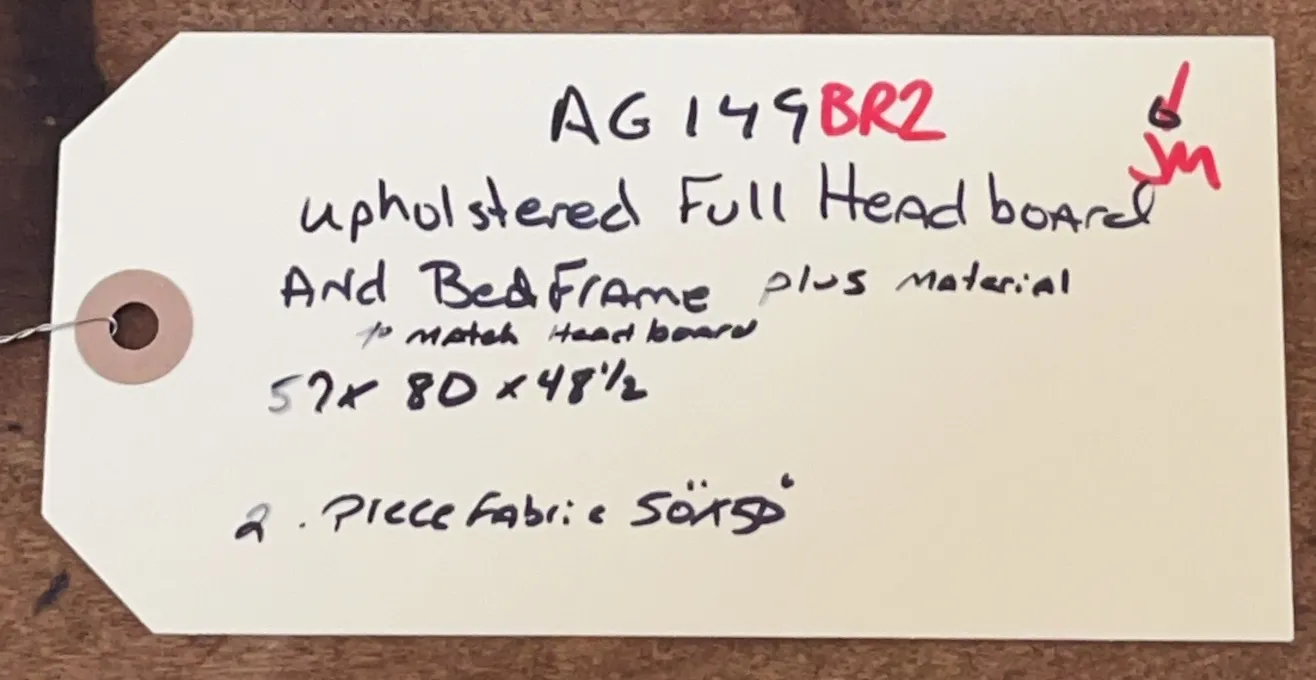 AG149BR2
JM
upholstered Full Headboard
And BedFrame plus Material
to Match Headboard
57x 80 x 48 1/2
2. Piece Fabric 50"x50"